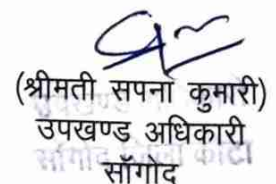 (श्रीमती सपना कुमारी)
उपखण्ड अधिकारी
सॉंगोद